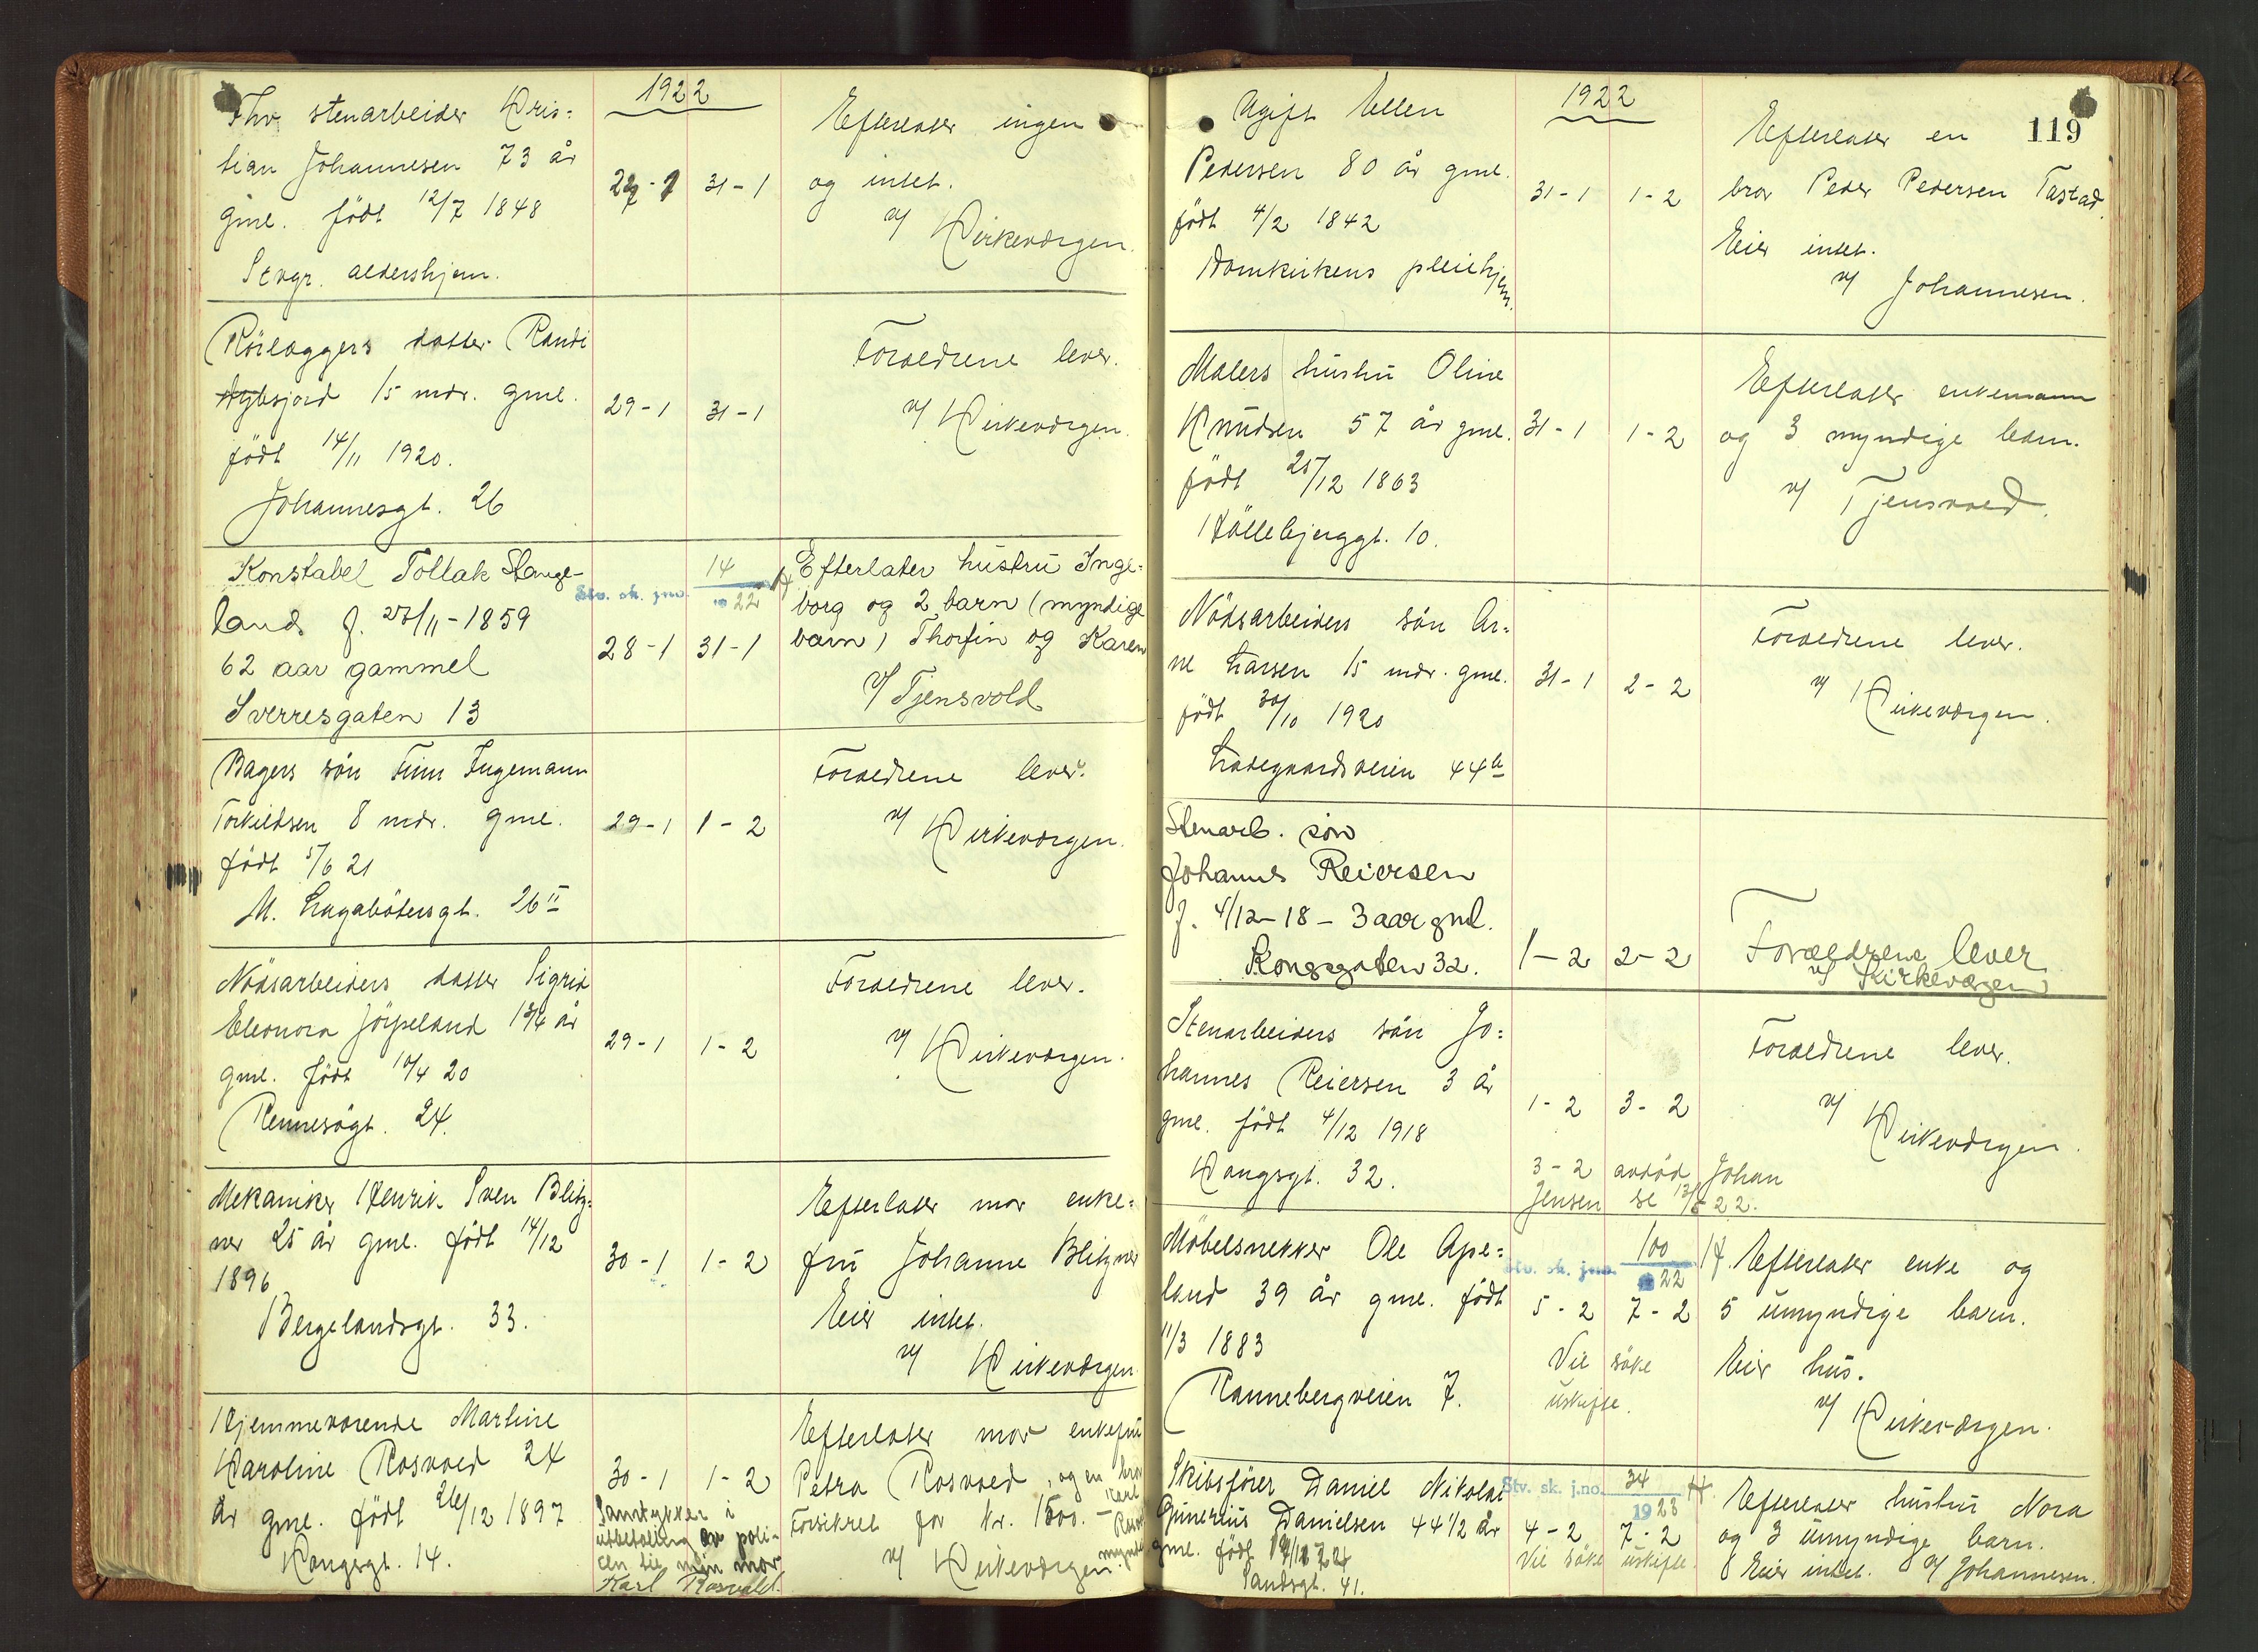 1922
Fhv. stenarbeider Kris=
tian Johannesen 73 år
gml. født 12/7 1848
Stvgr. aldershjem.
31-1
Efterlater ingen
og intet.
v/ Kirkevergen.
Rörlæggers datter Randi
15 mdr. gml.
født 14/11 1920.
Johannesgt. 26
29-1 31-1
Forældrene lever.
v/ Kirkevergen.
Konstabel Tollak Stange-
land f. /11-1859
62 aar gammel
Sverresgaten 13
Stv. sk. jno. 14
1922
28-1 31-1
Efterlater hustru Inge-
borg og 2 barn (myndige
barn) Thorfin og Karen
v/ Tjensvold
Bagers sön Finn Ingemann
Torkildsen 8 mdr. gml.
født 5/6 21
M. Lagabötersgt. 26 II
29-1 1-2
Forældrene lever.
v/ Kirkevergen.
Nödsarbeiders datter Sigrid
Eleonora Jörpeland 1 3/4 år
gml. født 10/4 20
Rennesögt. 24.
29-1 1-2
Forældrene lever.
v/ Kirkevergen.
Mekaniker Henrik Sven Blitz=
ner 25 år gml. født 14/12
1896
Bergelandsgt. 33.
30-1 1-2
Efterlater mor enke=
fru Johanne Blitzner
Eier intet.
v/ Kirkevergen
Hjemmeværende Martine
Karoline Rosvold 24
år gml. født 26/12 1897
Kongsgt. 14.
30-1 1-2
Samtykker i
utbetaling av poli-
cen til min mor
Karl Rosvold.
Efterlater mor enkefru
Petra Rosvold, og en bror
Karl
Forsikret for kr. 1500.-
v/ Kirkevergen.
119
1922
Ugift Ellen
Pedersen 80 år gml.
født 4/2 1842
Domkirkens pleiehjem.
31-1 1-2
Efterlater en
bror Peder Pedersen Tastad.
Eier intet.
v/ Johannesen.
Malers hustru Oline
Knudsen 57 år gml.
født 25/12 1863
Höllebjerggt. 10.
31-1 1-2
Efterlater enkemann
og 3 myndige barn.
v/ Tjensvold.
Nödsarbeiders sön Ar=
ne Larsen 15 mdr. gml.
født 30/10 1920
Ladegaardsveien 44 b
31-1 2-2
Forældrene lever.
v/ Kirkevergen.
Stenarb. søn
Johannes Reiersen
f. 4/12-18 - 3 aar gml.
Kongsgaten 32.
1-2 2-2
Forældrene lever
v/ Kirkevergen
Stenarbeiders sön Jo=
hannes Reiersen 3 år
gml. født 4/12 1918
Kongsgt. 32.
1-2 3-2
Forældrene lever.
v/ Kirkevergen.
3-2 avdöd Johan
Jensen se 22.
Möbelsnekker Ole Ape=
land 39 år gml. født
11/3 1883
Rannebergveien 7.
Stv. sk. jno. 100
1922
5-2 7-2
Vil söke
uskifte.
Efterlater enke og
5 umyndige barn.
Eier hus.
v/ Kirkevergen.
Skibsförer Daniel Nikolai
Gunerius Danielsen 44 1/2 år
gml. født
Sandsgt. 41.
Stv. sk. j.no. 34
1923
4-2 7-2
Vil söke uskifte.
Efterlater hustru Nora
og 3 umyndige barn.
Eier intet. v/ Johannesen.